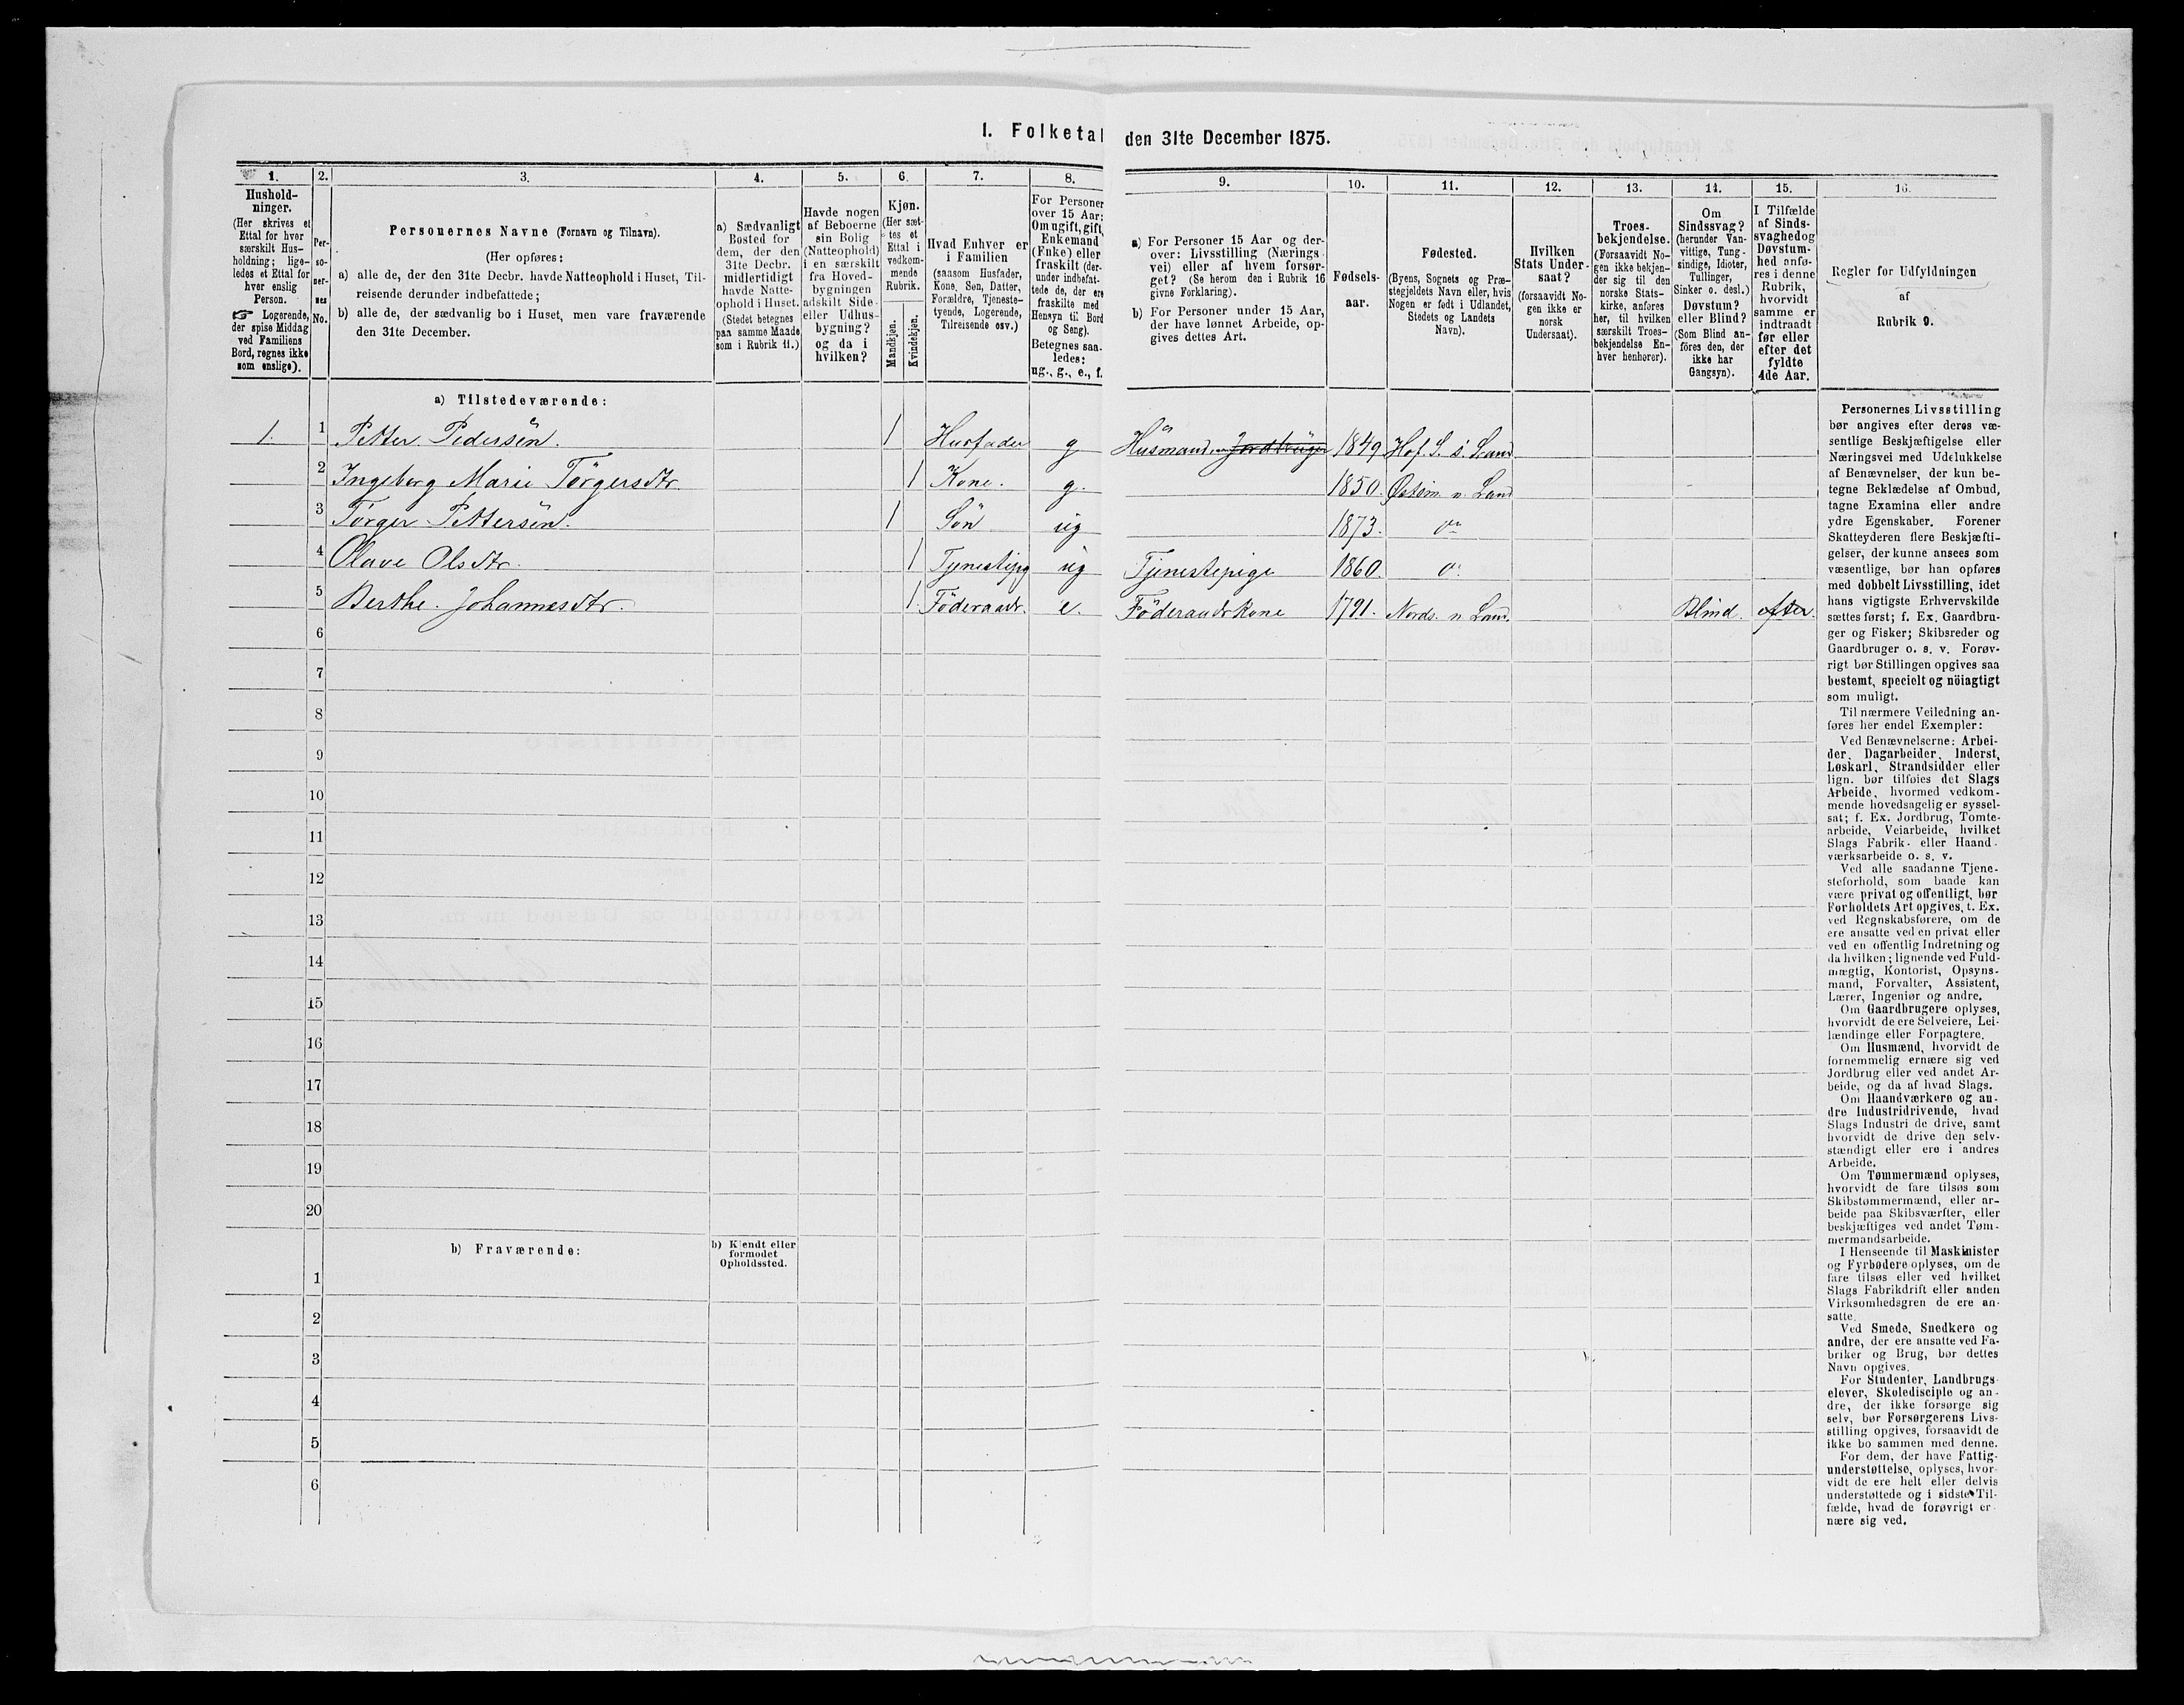 1. Folketal den 31te December 1875.
1. 2. 3. 4. 5. 6. 7. 8. 9. 10. 11. 12. 13. 14. 15. 16.
Hushold-
ninger.
(Her skrives et
Ettal for hver
særskilt Hus-
holdning; lige-
ledes et Ettal for
hver enslig
Person.
☞ Logerende,
der spise Middag
ved Familiens
Bord, regnes ikke
som enslige).
Per-
so-
ner-
nes
No.
Personernes Navne (Fornavn og Tilnavn).
(Her opføres:
a) alle de, der den 31te Decbr. havde Natteophold i Huset, Til-
reisende derunder indbefattede;
b) alle de, der sædvanlig bo i Huset, men vare fraværende
den 31te December.
a) Sædvanligt
Bosted for
dem, der den
31te Decbr.
midlertidigt
havde Natte-
ophold i Huset.
(Stedet betegnes
paa samme Maade
som i Rubrik 11.)
Havde nogen
af Beboerne
sin Bolig
(Natteophold)
i en særskilt
fra Hoved-
bygningen
adskilt Side-
eller Udhus-
bygning?
og da i
hvilken?
Kjøn.
(Her sæt-
tes et
Ettal i
vedkom-
mende
Rubrik.
Mandkjøn.
Kvindekjøn.
Hvad Enhver er
i Familien
(saasom Husfader,
Kone, Søn, Datter,
Forældre, Tjeneste-
tyende, Logerende,
Tilreisende osv.)
For Personer
over 15 Aar:
Om ugift, gift,
Enkemand
(Enke) eller
fraskilt (der-
under indbefat-
tede de, der ere
fraskilte med
Hensyn til Bord
og Seng).
Betegnes saa-
ledes:
ug., g., e., f.
a) For Personer 15 Aar og der-
over: Livsstilling (Nærings-
vei) eller af hvem forsør-
get? (Se herom den i Rubrik 16
givne Forklaring).
b) For Personer under 15 Aar,
der have lønnet Arbeide, op-
gives dettes Art.
Fødsels-
aar.
Fødested.
(Byens, Sognets og Præ-
stegjeldets Navn eller, hvis
Nogen er født i Udlandet,
Stedets og Landets
Navn).
Hvilken
Stats Under-
saat?
(forsaavidt No-
gen ikke er
norsk
Undersaat).
Troes-
bekjendelse.
(Forsaavidt No-
gen ikke bekjen-
der sig til den
norske Stats-
kirke, anføres
her, til hvilken
særskilt Troes-
bekjendelse En-
hver henhører).
Om
Sindssvag?
(herunder Van-
vittige, Tung-
sindige, Idioter,
Tullinger,
Sinker o. desl.)
Døvstum?
eller Blind?
(Som Blind an-
föres den, der
ikke har
Gangsyn).
I Tilfælde
af Sinds-
svaghed og
Døvstum-
hed anfø-
res i denne
Rubrik,
hvorvidt
samme er
indtraadt
før eller
efter det
fyldte
4de Aar.
Regler for Udfyldningen
af
Rubrik 9.
a) Tilstedeværende:
1. 1 Petter Pedersen. 1 Husfader g Husmand Jordbruger 1849 Hof. S. s. Land
2 Ingeborg Marie Törgersdtr. 1 Kone. g. 1850. Østsin n. Land
3 Törger Pettersen. 1 Sön ug 1873. do
4 Olave Olsdtr. 1 ug Tjenestepige 1860. do
5 Berthe. Johannesdtr. 1. Föderaadk. e. Föderaadskone 1791. Nords. n Land. Blind. efter.
6
7
8
9
10
11
12
13
14
15
16
17
18
19
20
b) Fraværende:
b) Kjendt eller
formodet
Opholdssted.
1
2
3
4
5
6
Personernes Livsstilling
bør angives efter deres væ-
sentlige Beskjæftigelse eller
Næringsvei med Udelukkelse
af Benævnelser, der kun be-
tegne Beklædelse af Ombud,
tagne Examina eller andre
ydre Egenskaber. Forener
Skatteyderen flere Beskjæfti-
gelser, der kunne ansees som
væsentlige, bør han opføres
med dobbelt Livsstilling, idet
hans vigtigste Erhvervskilde
sættes først; f. Ex. Gaardbru-
ger og Fisker; Skibsreder og
Gaardbruger o. s. v. Forøv-
rigt bør Stillingen opgives saa
bestemt, specielt og nöiagtigt
som muligt.
Til nærmere Veiledning an-
føres her endel Exempler:
Ved Benævnelserne: Arbei-
der, Dagarbeider, Inderst,
Løskarl, Strandsidder eller
lign. bør tilføies det Slags
Arbeide, hvormed vedkom-
mende hovedsagelig er syssel-
sat; f. Ex. Jordbrug, Tomte-
arbeide, Veiarbeide, hvilket
Slags Fabrik- eller Haand-
værksarbeide o. s. v.
Ved alle saadanne Tjene-
steforhold, som baade kan
være privat og offentligt, bør
Forholdets Art opgives, t. Ex.
ved Regnskabsførere, om de
ere ansatte ved en privat eller
ved en offentlig Indretning og
da hvilken; lignende ved Fuld-
mægtig, Kontorist, Opsyns-
mand, Forvalter, Assistent,
Lærer, Ingeniør og andre.
Om Gaardbrugere oplyses,
hvorvidt de ere Selveiere, Lei-
lændinge eller Forpagtere.
Om Husmænd, hvorvidt de
fornemmelig ernære sig ved
Jordbrug eller ved andet Ar-
beide, og da af hvad Slags.
Om Haandværkere og an-
dre Industridrivende, hvad
Slags Industri de drive, samt
hvorvidt de drive den selv-
stændigt eller ere i andres
Arbeide.
Om Tømmermænd oplyses,
hvorvidt de fare tilsøs som
Skibstømmermænd, eller ar-
beide paa Skibsværfter, eller
beskjæftiges ved andet Tøm-
mermandsarbeide.
I Henseende til Maskinister
og Fyrbødere oplyses, om de
fare tilsøs eller ved hvilket
Slags Fabrikdrift eller anden
Virksomhedsgren de ere an-
satte.
Ved Smede, Snedkere og
andre, der ere ansatte ved Fa-
briker og Brug, bør dettes
Navn opgives.
For Studenter, Landbrugs-
elever, Skoledisciple og an-
dre, der ikke forsørge sig
selv, bør Forsørgerens Livs-
stilling opgives, forsaavidt de
ikke bo sammen med denne.
For dem, der have Fattig-
understøttelse, oplyses, hvor-
vidt de ere helt eller delvis
understøttede og i sidste Til-
fælde, hvad de forøvrigt er-
nære sig ved.